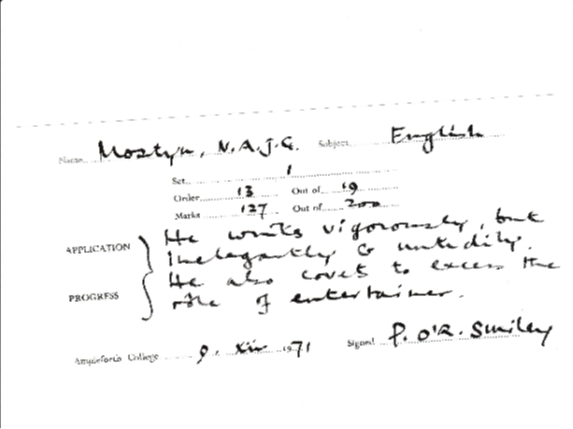 Name Mostyn, N.A.J.G. Subject English
Set 1
Order 13 Out of 19
Marks 127 Out of 200
APPLICATION He writes vigorously, but
inelegantly & untidily.
He also covets to excess the
PROGRESS rôle of entertainer.
Ampleforth College 9. xii 1971 Signed P. O'R. Smiley